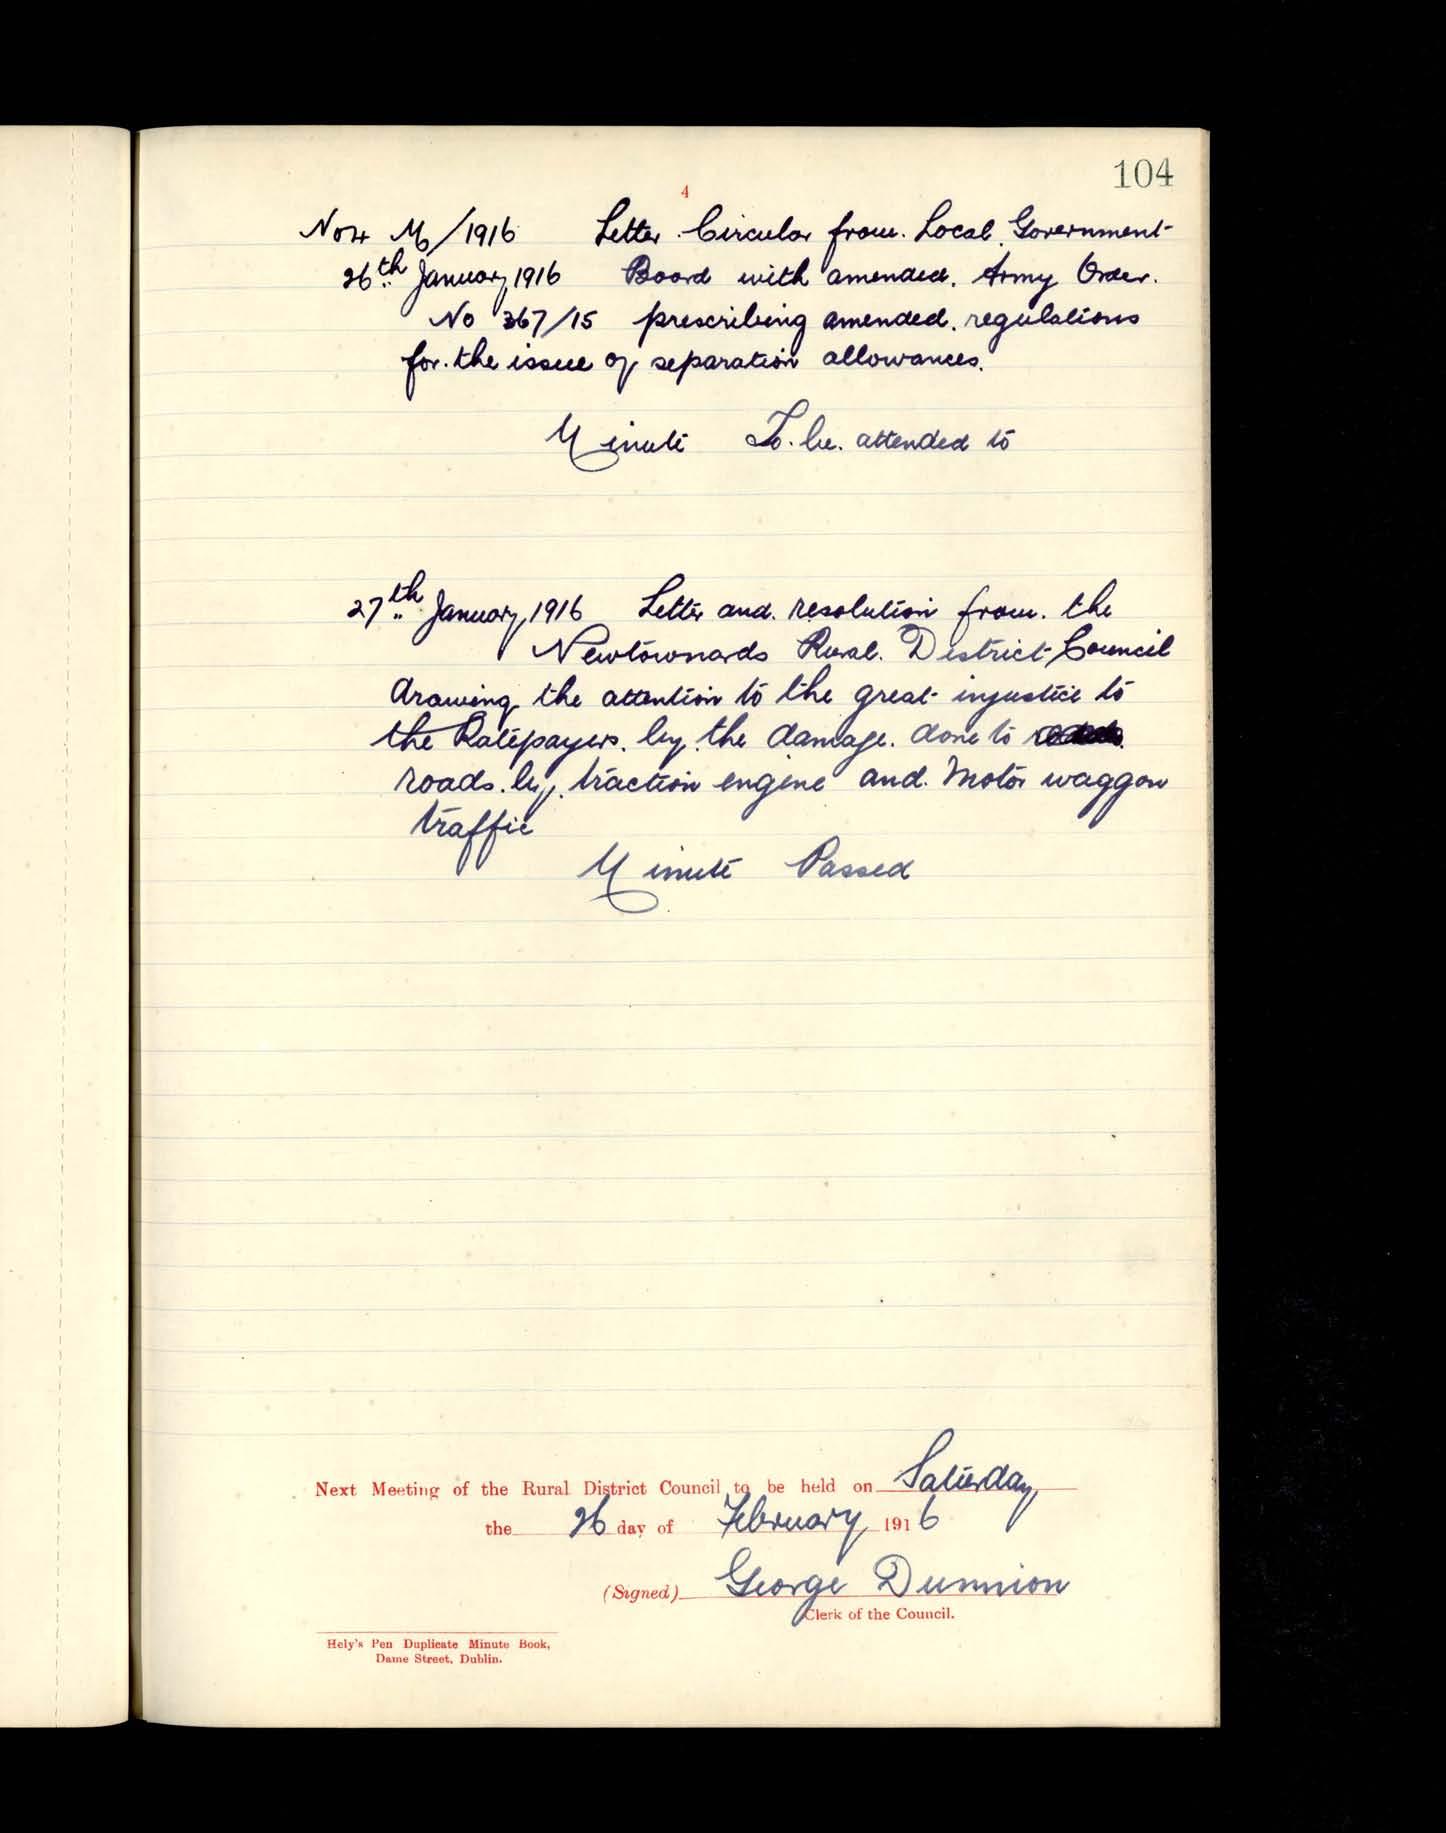 104
4
No 4 M/1916 Letter Circular from Local Government
26th January 1916 Board with amended Army Order
No 367/15 prescribing amended regulations
for the issue of separation allowances.
Minute To be attended to
27th January 1916 Letter and resolution from the
Newtownards Rural District Council
drawing the attention to the great injustice to
the Ratepayers by the damage done to
roads by traction engine and Motor waggon
traffic
Minute Passed
Next Meeting of the Rural District Council to be held on Saturday
the 26 day of February 1916
(Signed) George Dunnion
Clerk of the Council.
Hely's Pen Duplicate Minute Book,
Dame Street, Dublin.